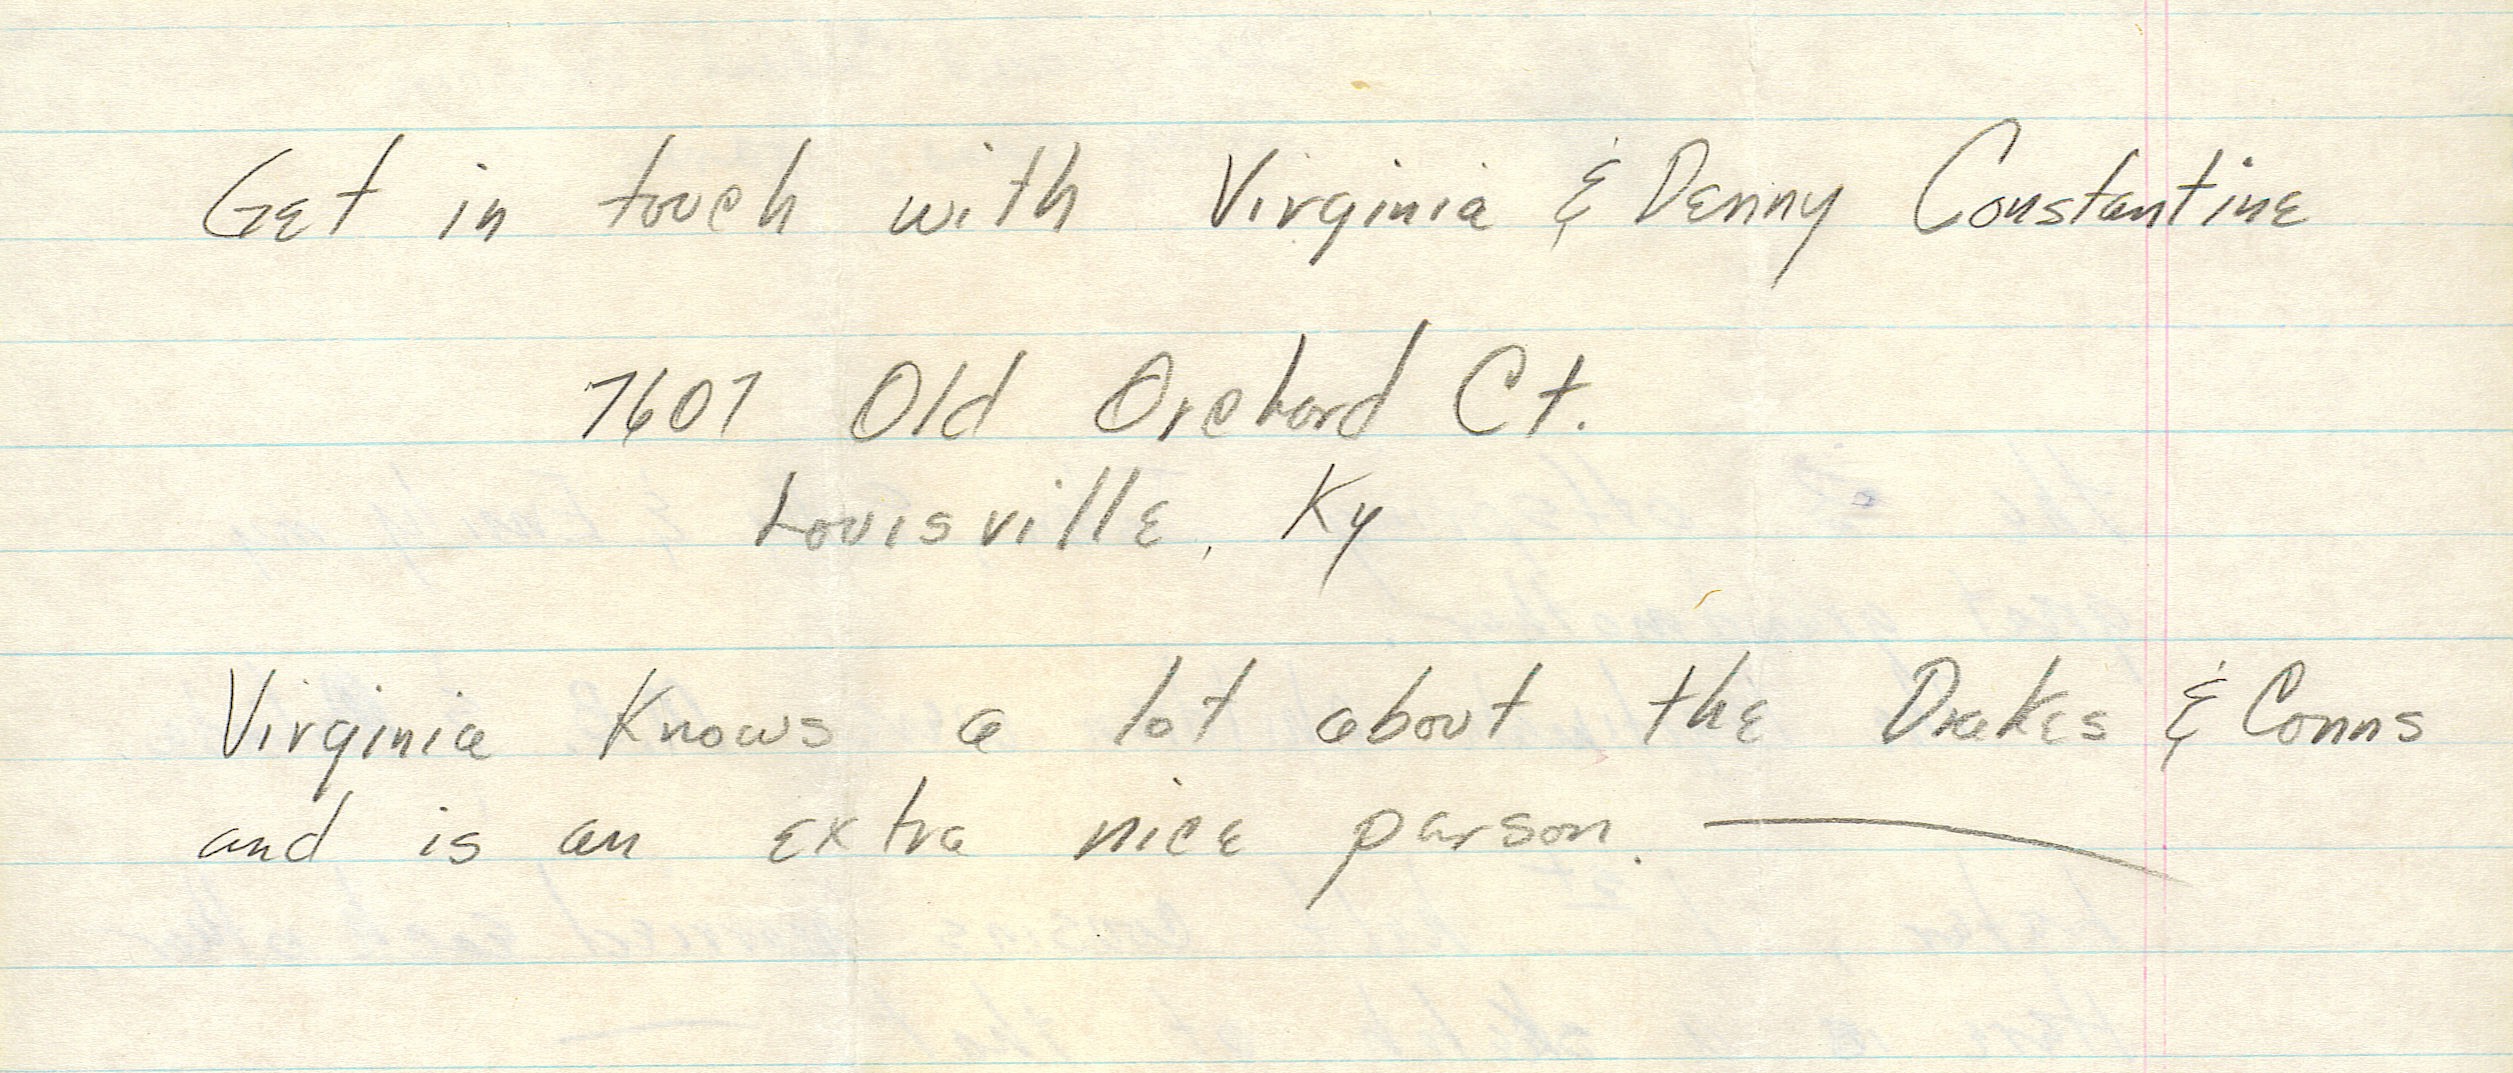 Get in touch with Virginia & Denny Constantine
7607 Old Orchard Ct.
Louisville, Ky
Virginia knows a lot about the Drakes & Conns
and is an extra nice person.